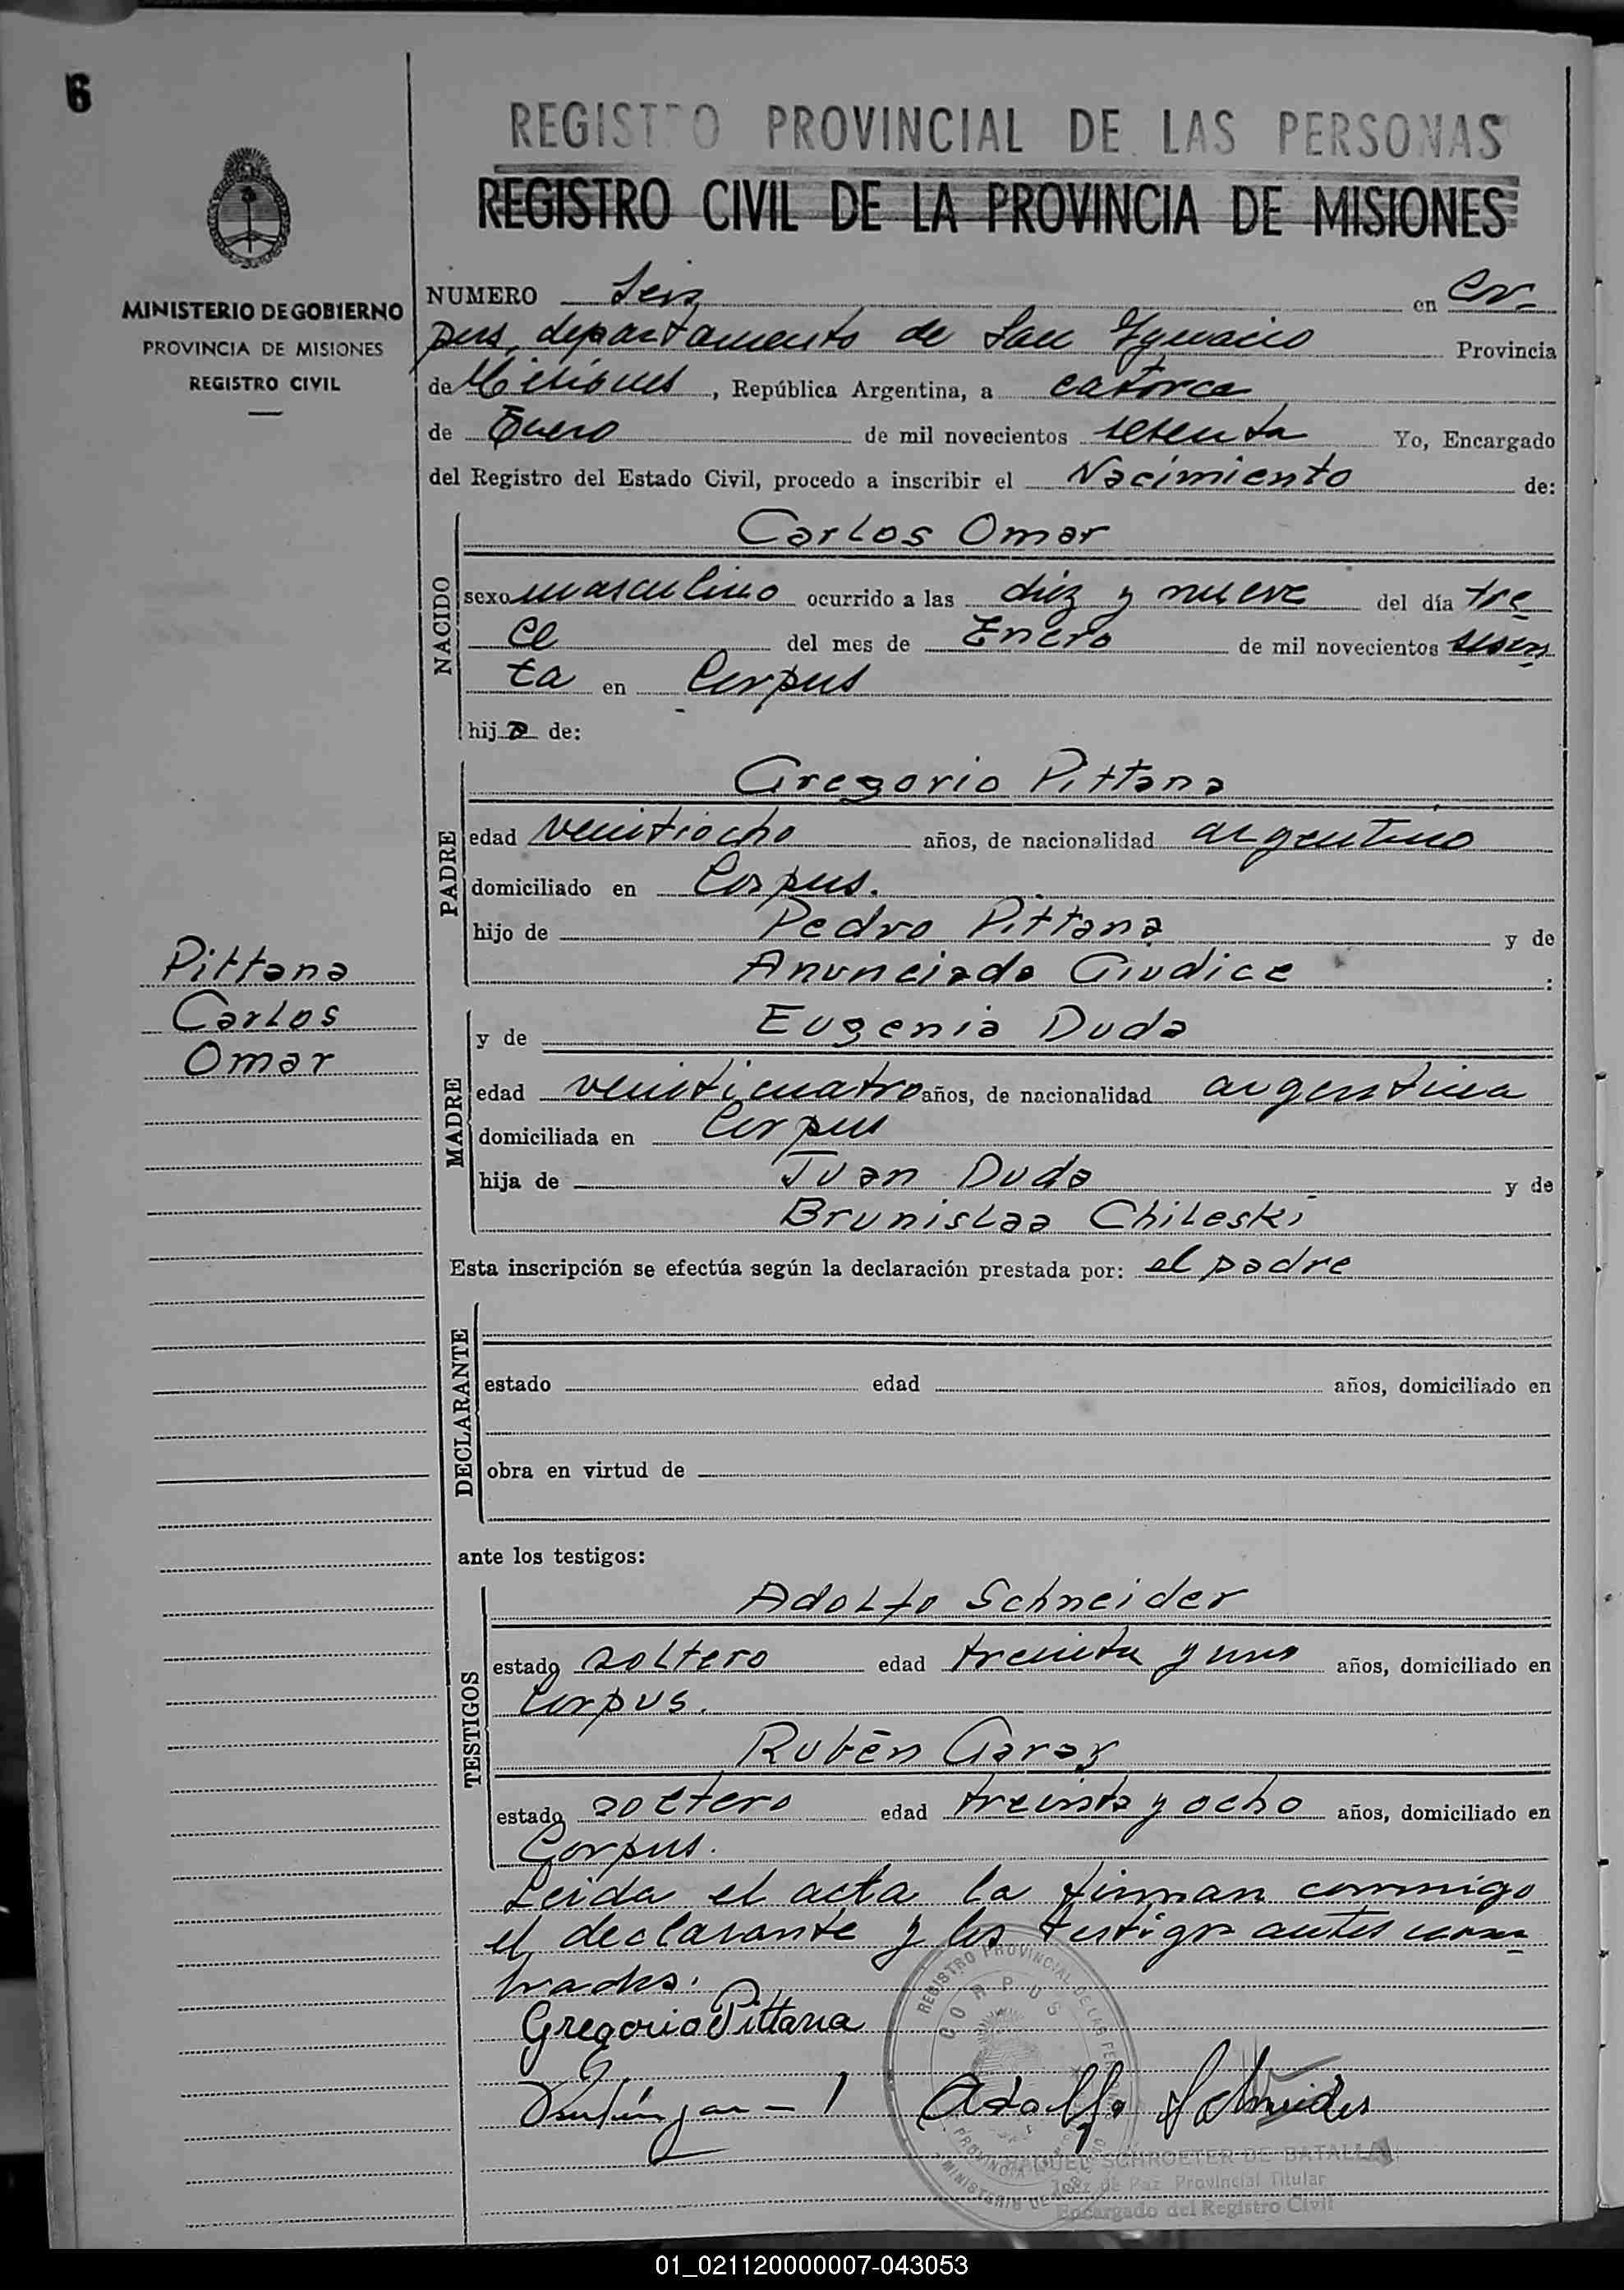 6
REGISTRO PROVINCIAL DE LAS PERSONAS
REGISTRO CIVIL DE LA PROVINCIA DE MISIONES
MINISTERIO DE GOBIERNO
PROVINCIA DE MISIONES
REGISTRO CIVIL
NUMERO Seis en Cor-
pus, departamento de San Ygnacio Provincia
de Misiones, República Argentina, a catorce
de Enero de mil novecientos sesenta Yo, Encargado
del Registro del Estado Civil, procedo a inscribir el Nacimiento de:
NACIDO
Carlos Omar
sexo masculino ocurrido a las diez y nueve del día tre
ce del mes de Enero de mil novecientos sesen
ta en Corpus
hijo de:
PADRE
Gregorio Pittana
edad veintiocho años, de nacionalidad argentino
domiciliado en Corpus.
hijo de Pedro Pittana y de
Anunciada Giudice :
Pittana
Carlos
Omar
MADRE
y de Eugenia Duda
edad veinticuatro años, de nacionalidad argentina
domiciliada en Corpus
hija de Juan Duda y de
Brunislaa Chileski
Esta inscripción se efectúa según la declaración prestada por: el padre
DECLARANTE
estado edad años, domiciliado en
obra en virtud de
ante los testigos:
TESTIGOS
Adolfo Schneider
estado soltero edad treinta y uno años, domiciliado en
Corpus.
Rubén Garay
estado soltero edad treinta y ocho años, domiciliado en
Corpus.
Leida el acta la firman conmigo
el declarante y los testigos antes nom
brados.
Gregorio Pittana
Adolfo Schneider
REGISTRO PROVINCIAL DE LAS PERSONAS
CORPUS
PROVINCIA
MINISTERIO DE GOBIERNO
SCHROETER DE BATALLA
Juez de Paz Provincial Titular
Encargado del Registro Civil
01_021120000007-043053